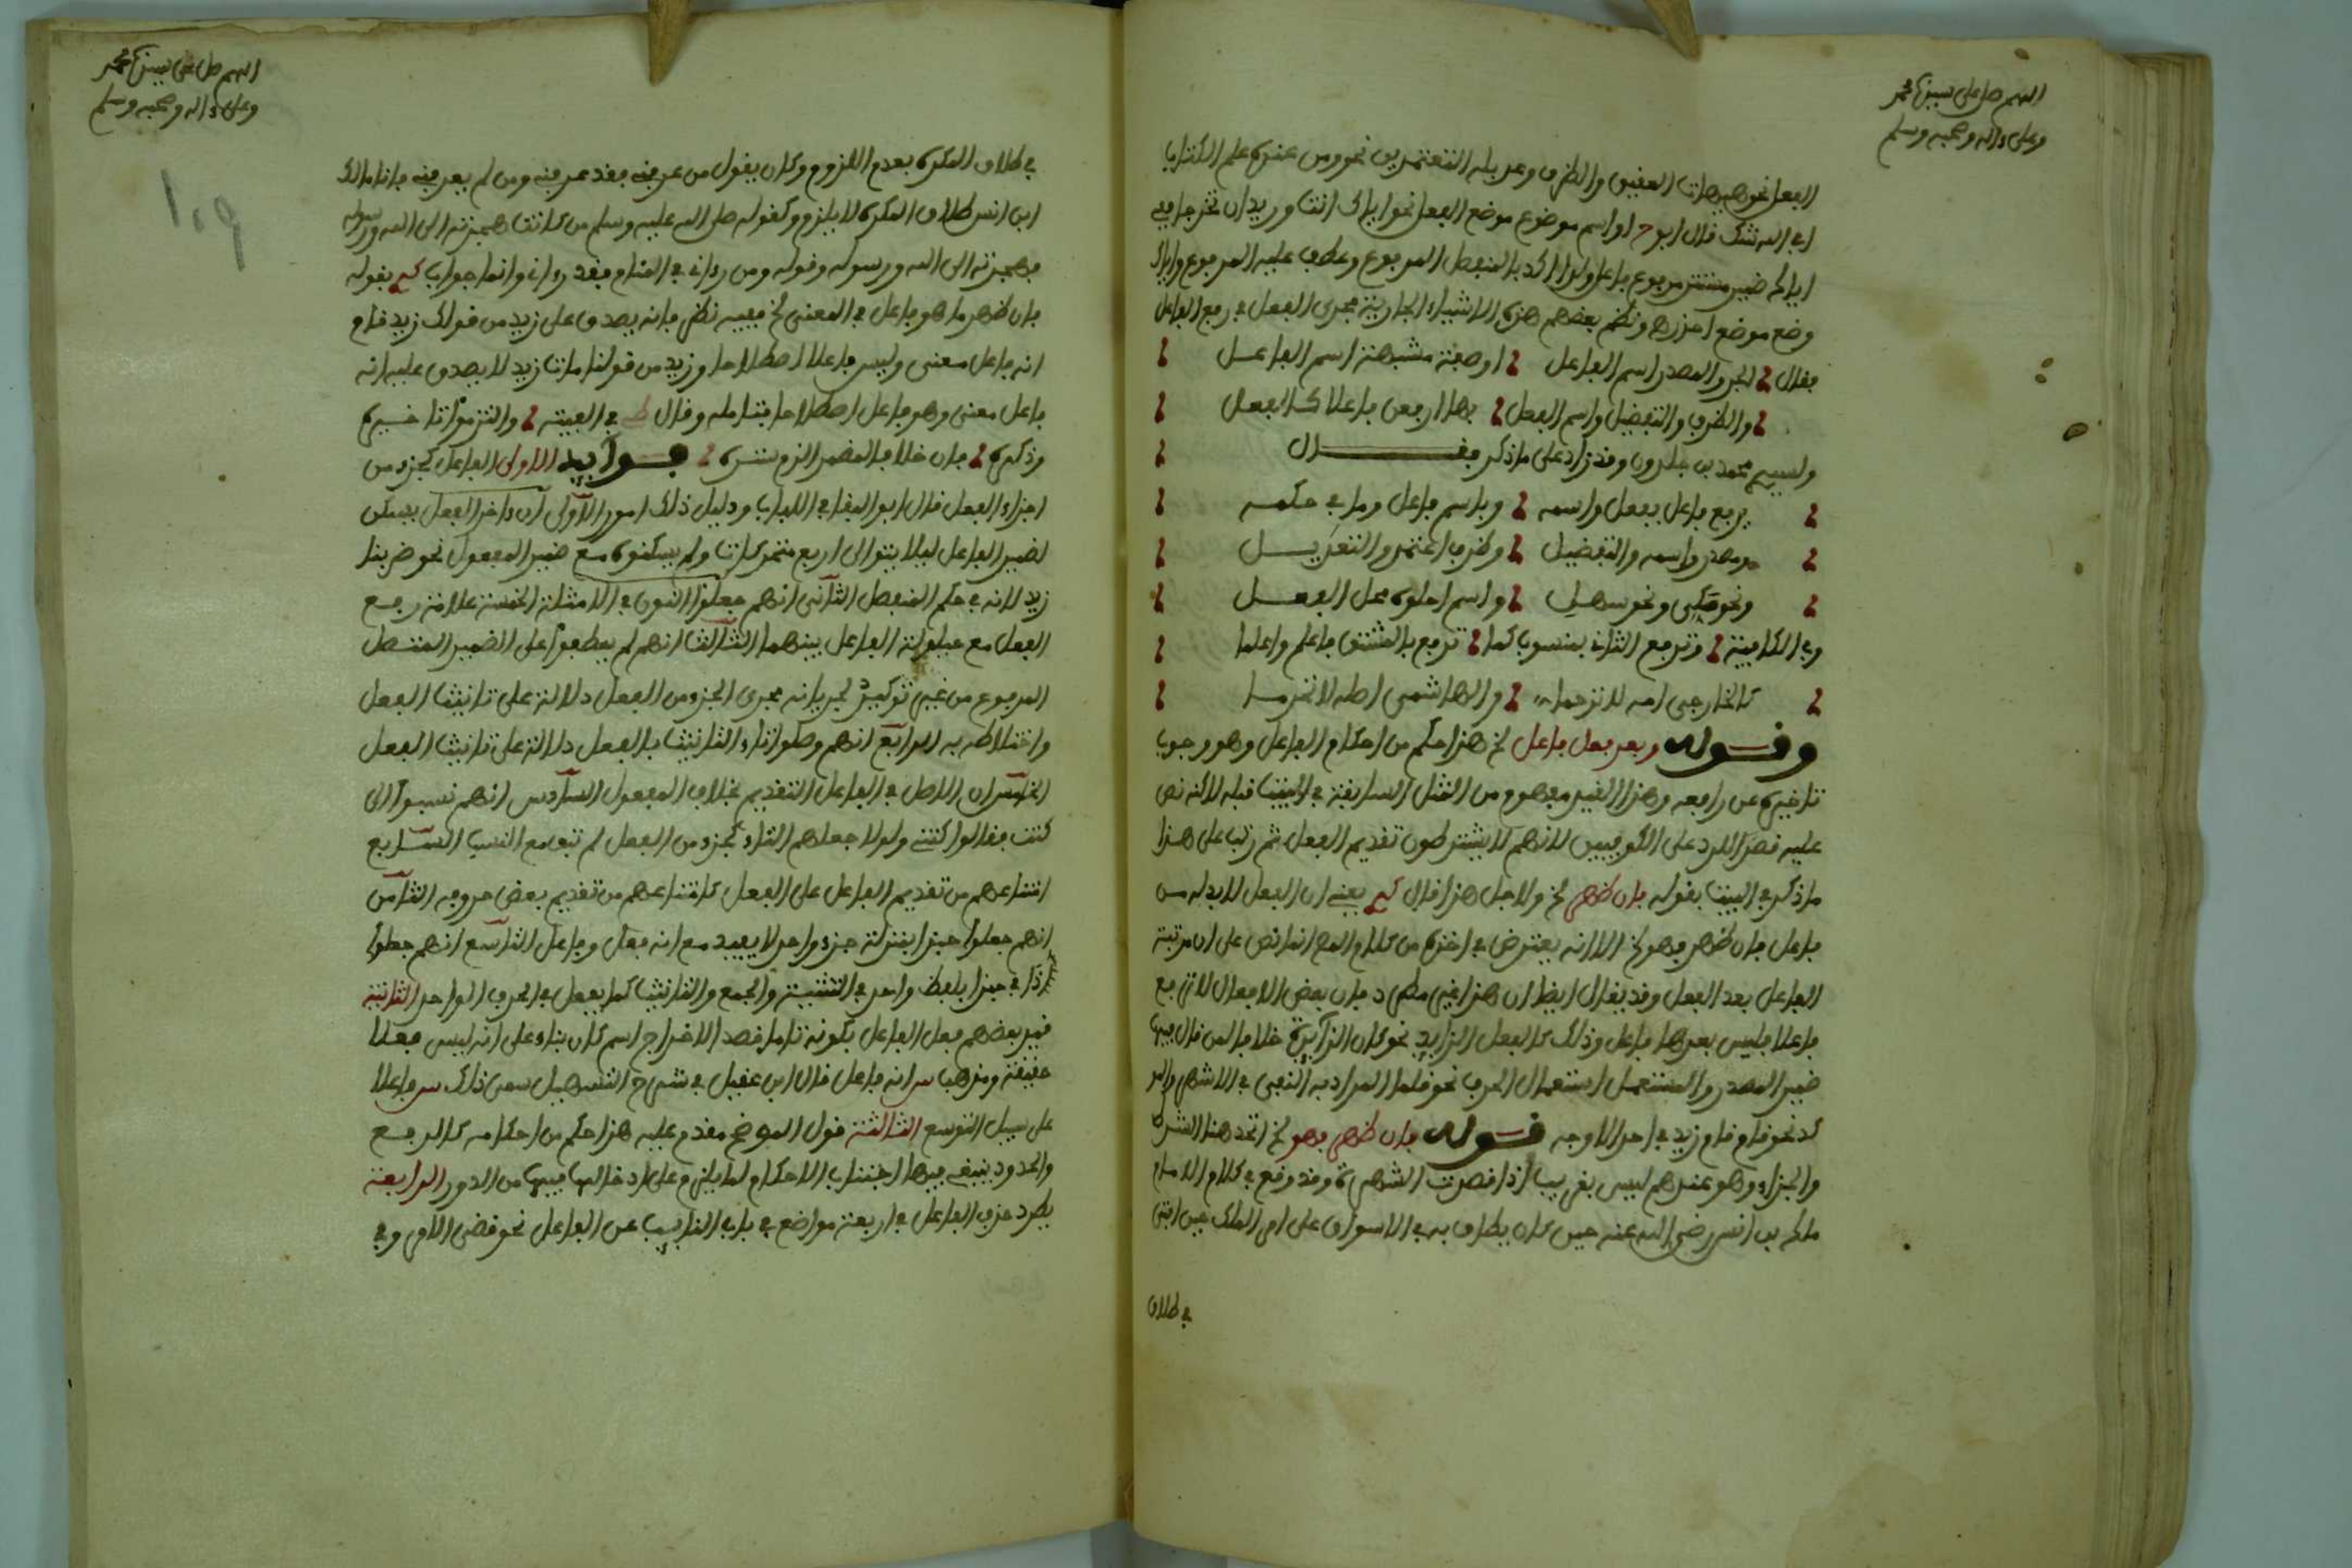 اللهم صل على سيدنا محمد
وعلى ءاله وصحبه وسلم
الفعل نحو هيهات العقيق والظرف وعديله المعتمدين نحو ومن عنده علم الكتاب
أفي الله شك قال ابوح او اسم موضوع موضع الفعل نحو اياك انت وزيد ان تخرجا ففي
اياك ضمير مستتر مرفوع باعل ولذا اكد بالمنفصل المرفوع وعطف عليه المرفوع واياك
وضع موضع احذر ونظم بعضهم هذه الاشياء الجارية مجرى الفعل في رفع الفاعل
فقال اجر والمصدر اسم الفاعل او صفة مشبهة اسم الفاعل
والظرف والتفضيل واسم الفعل بها ارفعن فاعلا كالفعل
ولسيدي محمد بن وقد زاد على ما ذكر فقال
يرفع فاعل بفعل واسمه وباسم فاعل وما في حكمه
ومصدر واسمه والتفضيل وظرف اعتمد والتعديل
ونحو ونحو سهيل واسم احلوه محل الفعل
وفي الكافية وترفع الثاني بمنسوب كما ترفع بالمشتق فاعلم واعلما
كالخارجي امه لا ترحما والهاشمي اطه لا تحرما
وقوله وبعد فعل فاعل الخ هذا حكم من احكام الفاعل وهو وجوب
تاخيره عن رافعه وهذا القيد مفهوم من المثل السابقة في البيت قبله لاكنه نص
عليه قصد الرد على الكوفيين لانهم لا يشترطون تقديم الفعل ثم رتب على هذا
ما ذكر في البيت بقوله فان ظهر الخ ولاجل هذا قال يعني ان الفعل لا بد له من
فاعل فان ظهر فهو الخ الا انه يعترض في اخذه من كلام المص انما نص على ان مرتبة
الفاعل بعد الفعل وقد يقال ايضا ان هذا غير مطرد فان بعض الافعال لا ترفع
فاعلا فليس بعدها فاعل وذلك كالفعل الزايد نحو كان الزايدة خلافا لمن قال فيها
ضمير المصدر والمستعمل استعمال الحرف نحو قلما المراد به النفي في الاشهر والمو
كد نحو قام قام زيد في احد الاوجه قوله فان ظهر فهو الخ اتحد هنا الشرط
والجزاء وهو عندهم ليس بغريب اذا قصدت الشهرة وقد وقع في كلام الامام
مالك بن انس رضي الله عنه حين كان يطاف به في الاسواق على امر الملك حين افتى
في طلاق
اللهم صل على سيدنا محمد
وعلى ءاله وصحبه وسلم
١٠٩
في طلاق المكره بعدم اللزوم وكان يقول من عرفني فقد عرفني ومن لم يعرفني فانا مالك
ابن انس طلاق المكره لا يلزم وكقوله صلى الله عليه وسلم من كانت هجرته الى الله ورسوله
فهجرته الى الله ورسوله وقوله ومن رءاني في المنام فقد رءاني وانما جواب بقوله
فان ظهر ما هو فاعل في المعنى الخ ففيه نظر فانه يصدق على زيد من قولك زيد قام
انه فاعل معنى وليس فاعلا اصطلاحا وزيد من قولنا مات زيد لا يصدق عليه انه
فاعل معنى وهو فاعل اصطلاحا فتامله وقال في الفيته والتزموا تاخيره
وذكره فان خلا فالمضمر الزم ستره فوايد الاولى الفاعل كجزء من
اجزاء الفعل قال ابو البقا في اللباب ودليل ذلك امور الاول ان ءاخر الفعل يسكن
لضمير الفاعل ليلا يتوالى اربع متحركات ولم يسكنوه مع ضمير المفعول نحو ضربنا
زيد لانه في حكم المنفصل الثاني انهم جعلوا النون في الامثلة الخمسة علامة رفع
الفعل مع حيلولة الفاعل بينهما الثالث انهم لم يعطفوا على الضمير المتصل
المرفوع من غير توكيد لجريانه مجرى الجزء من الفعل دلالة على تانيث الفعل
واختلاطه به الرابع انهم وصلوا تاء التانيث بالفعل دلالة على تانيث الفعل
الخامس ان الاصل في الفاعل التقديم بخلاف المفعول السادس انهم نسبوا الى
كنت فقالوا كنتي ولولا جعلهم التاء كجزء من الفعل لم تبق مع النسب السابع
امتناعهم من تقديم الفاعل على الفعل كامتناعهم من تقديم بعض حروفه الثامن
انهم جعلوا حبذا بمنزلة جزء واحد لا يفيد مع انه فعل وفاعل التاسع انهم جعلوا
ذا في حبذا بلفظ واحد في التثنية والجمع والتانيث كما يفعل في الحرف الواحد الثانية
قيد بعضهم فعل الفاعل بكونه تاما قصد الاخراج اسم كان بناء على انه ليس فعلا
حقيقة ومذهب س انه فاعل قال ابن عقيل في شرح التسهيل سمى ذلك س فاعلا
على سبيل التوسع الثالثة قول الموضح مقدم عليه هذا حكم من احكامه كالرفع
والحدود ينبغي فيها اجتناب الاحكام لما يلزم على ادخالها فيها من الدور الرابعة
يطرد حذف الفاعل في اربعة مواضع في باب النايب عن الفاعل نحو قضي الامر وفي